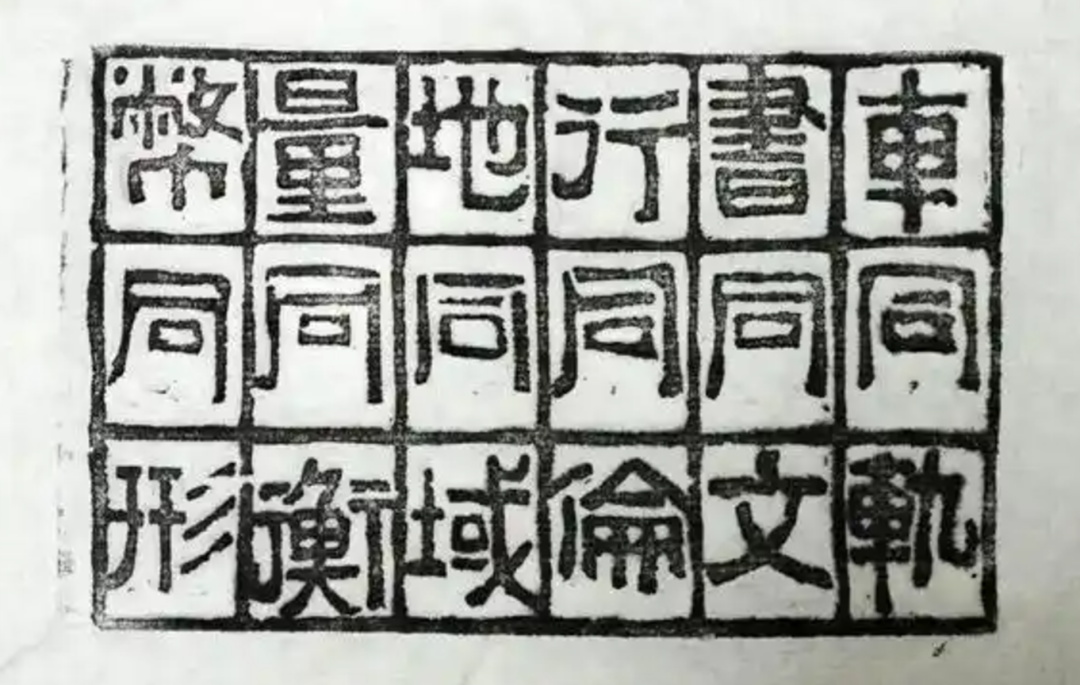 車同軌
書同文
行同倫
地同域
量同衡
幣同形